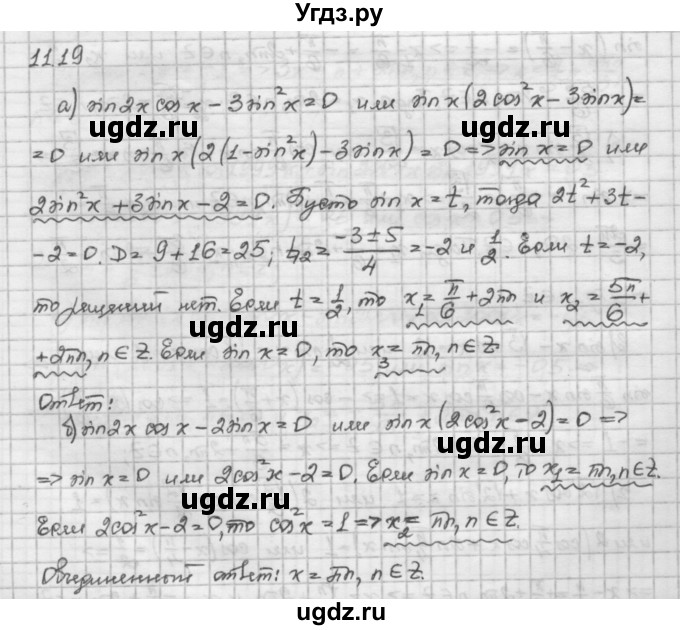 Угдз.ру
11.19
а) sin2x cosx − 3sin²x = 0 или sinx(2cos²x − 3sinx) =
= 0 или sinx(2(1−sin²x) − 3sinx) = 0 => sinx = 0 или
2sin²x + 3sinx − 2 = 0. Пусть sinx = t, тогда 2t² + 3t −
− 2 = 0. D = 9 + 16 = 25; t₁,₂ = (−3 ± 5)/4 = −2 и 1/2. Если t = −2,
то решений нет. Если t = 1/2, то x₁ = π/6 + 2πn и x₂ = 5π/6 +
+ 2πn, n ∈ Z. Если sinx = 0, то x₃ = πn, n ∈ Z
Ответ:
б) sin2x cosx − 2sinx = 0 или sinx(2cos²x − 2) = 0 =>
=> sinx = 0 или 2cos²x − 2 = 0. Если sinx = 0, то x₁ = πn, n ∈ Z.
Если 2cos²x − 2 = 0, то cos²x = 1 => x₂ = πn, n ∈ Z.
Объединенный ответ: x = πn, n ∈ Z.
ugdz.ru
ugdz.ru
ugdz.ru
ugdz.ru
ugdz.ru
ugdz.ru
ugdz.ru
ugdz.ru
ugdz.ru
ugdz.ru
ugdz.ru